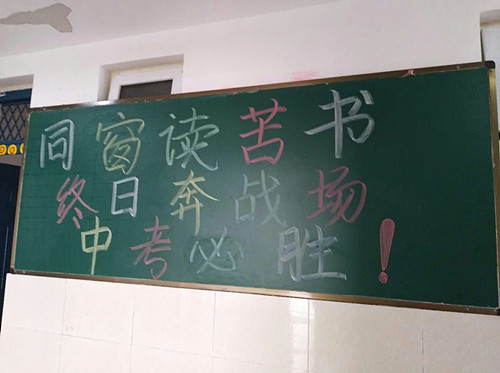 同窗读苦书
终日奔战场
中考必胜!